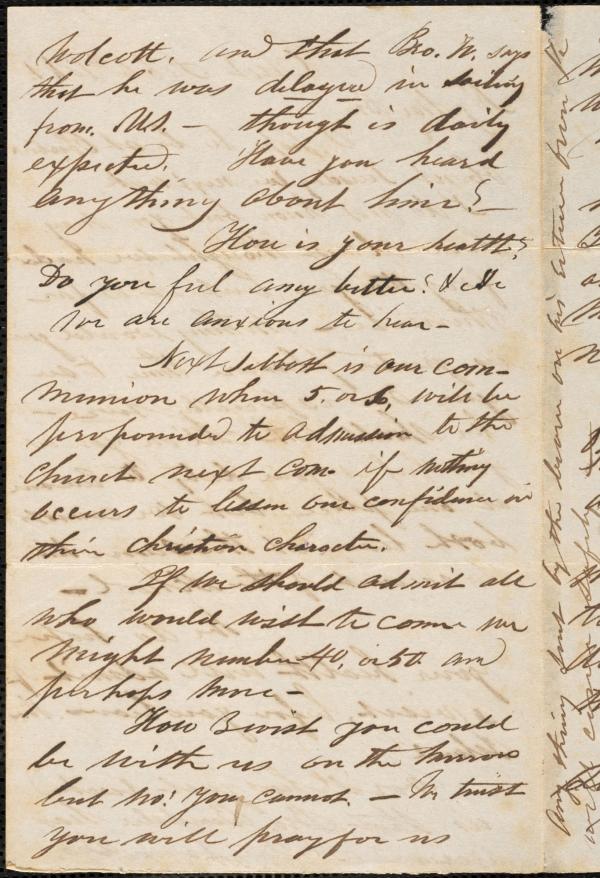 Wolcott. and that Bro. W. says
that he was delayed in sailing
from U.S. — though is daily
expected. Have you heard
anything about him? —
How is your health?
Do you feel any better? &c &c
We are anxious to hear —
Next Sabbath is our com-
munion when 5. or 6, will be
propounded to admission to the
church next com. if nothing
occurs to lessen our confidence in
their christian character.
If we should admit all
who would wish to come we
might number 40, or 50 and
perhaps more —
How I wish you could
be with us on the morrow
but no! you cannot. — We trust
you will pray for us
Any thing sent by the bearer on his return from